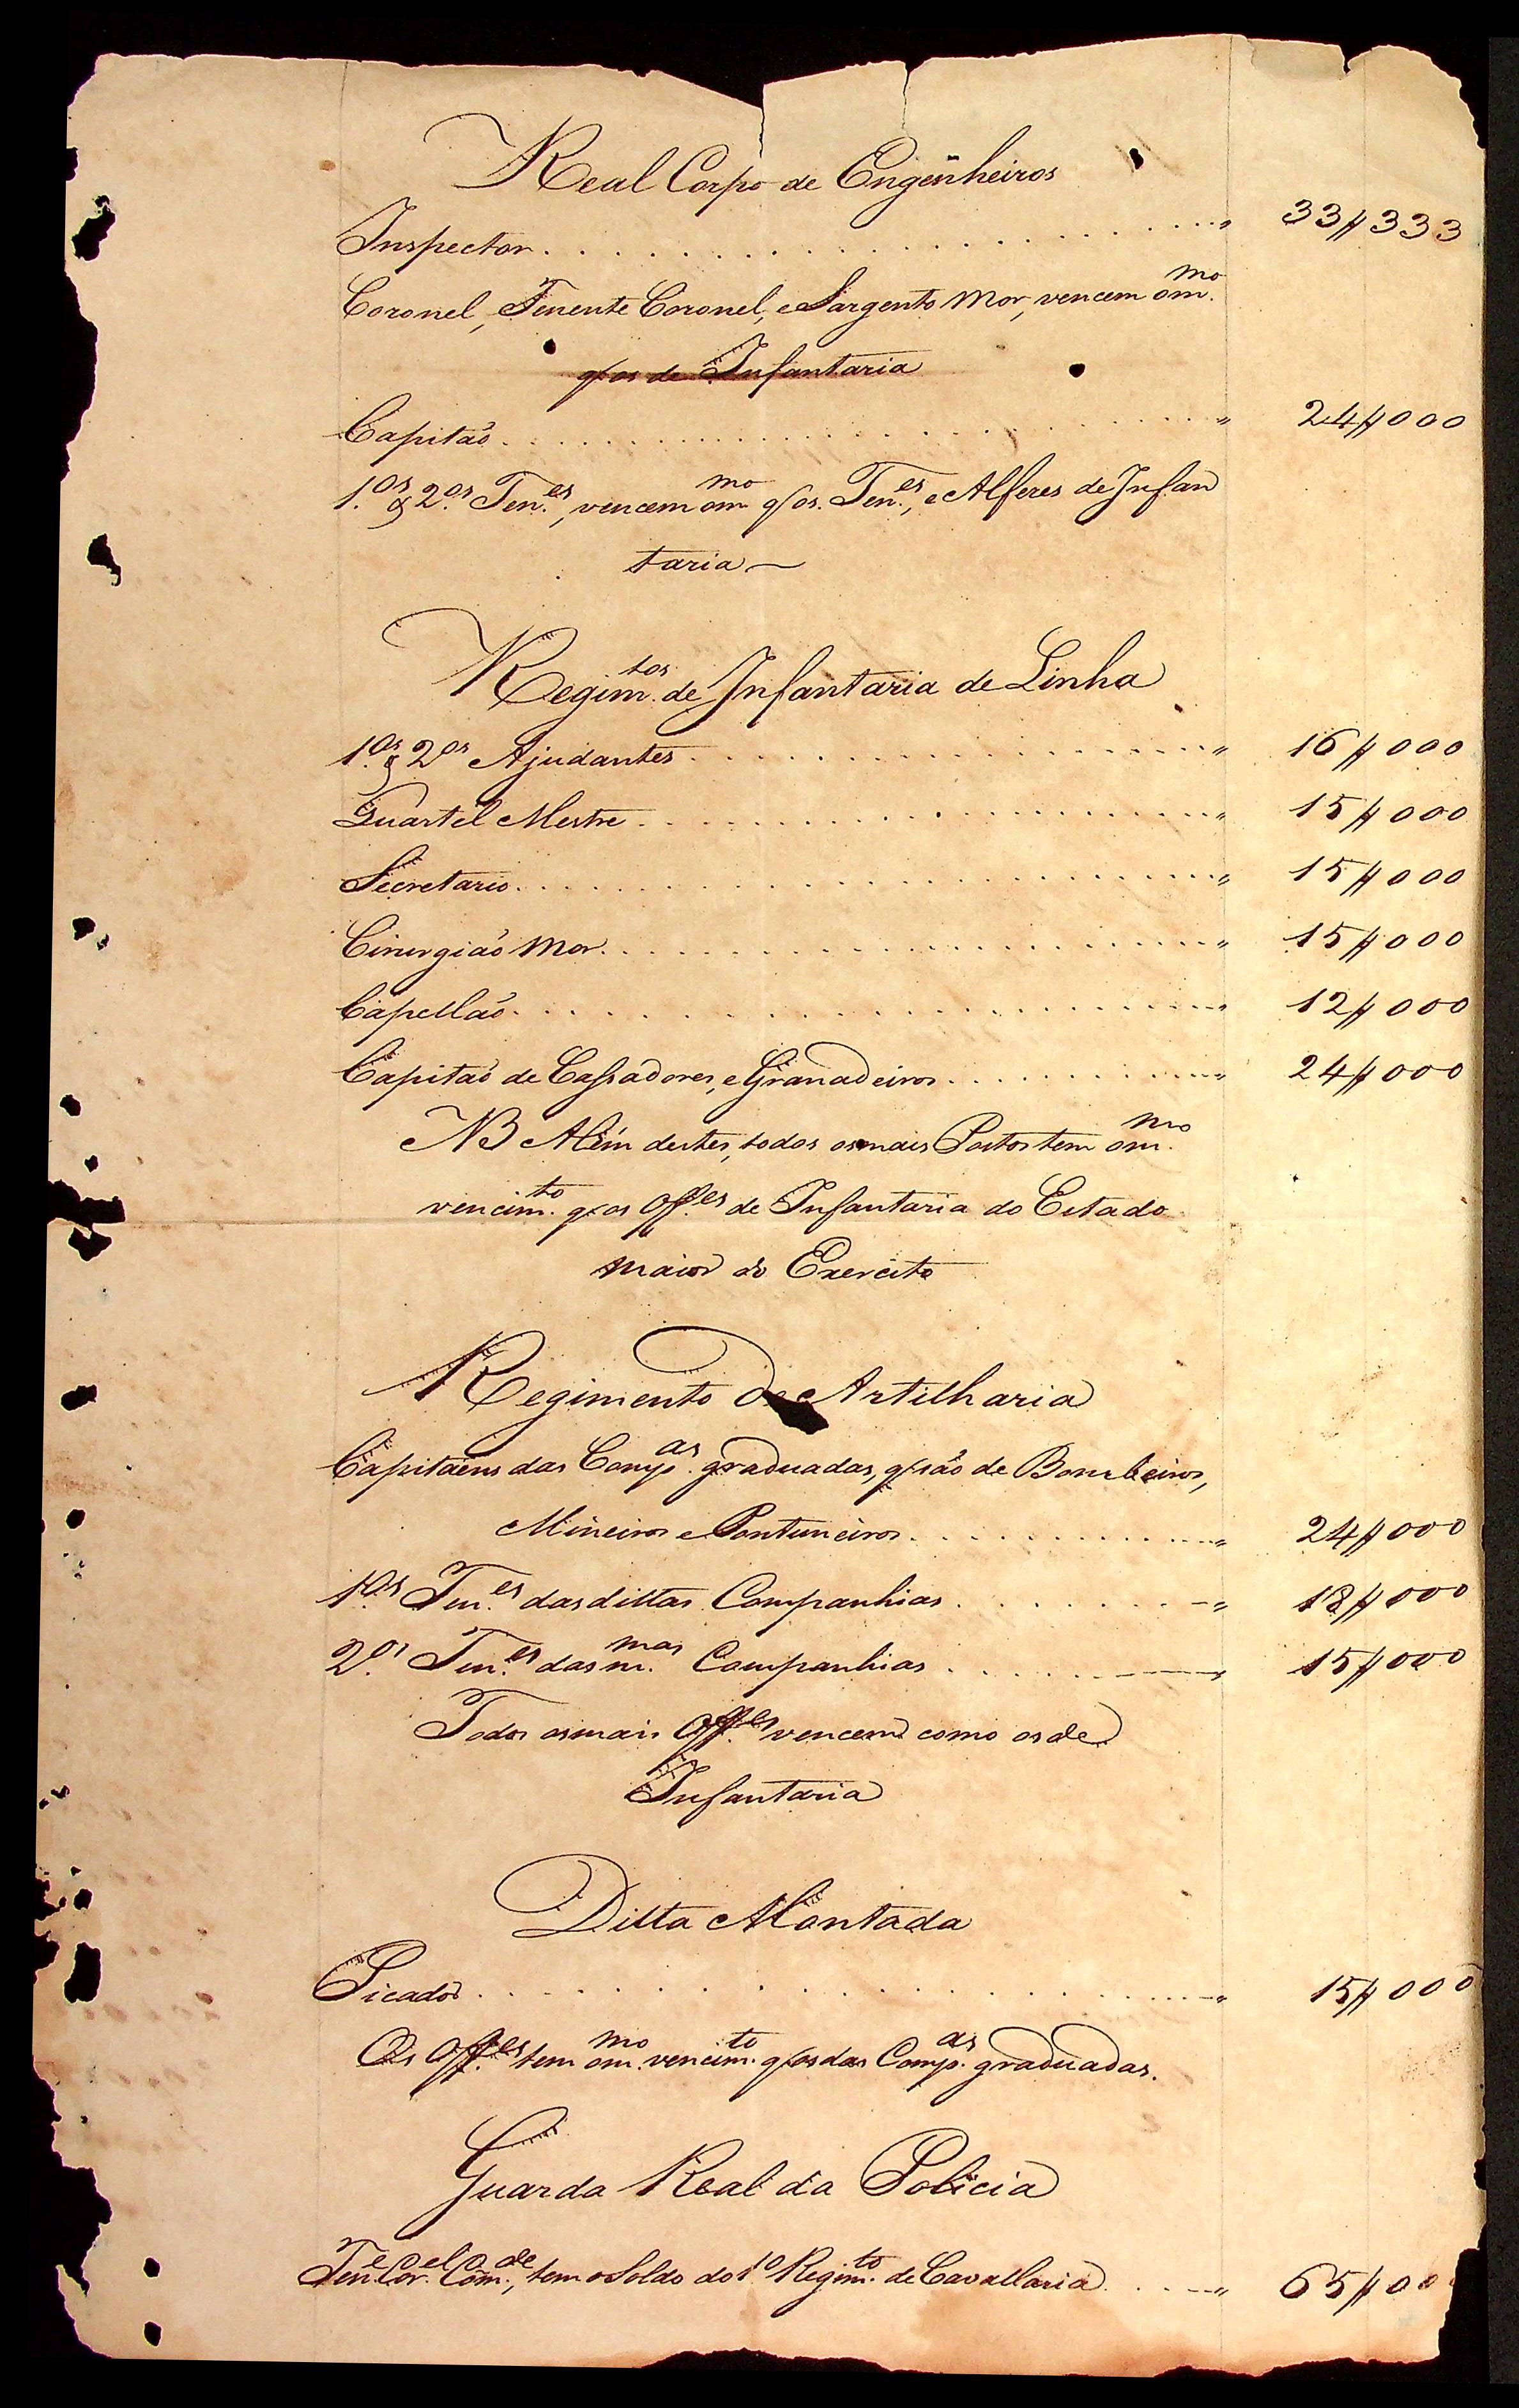 Real Corpo de Engenheiros
Inspector . . . . . . . . . . . . . . . . " 33$333
Coronel, Tenente Coronel, e Sargento Mor, vencem o m.mo
q̃ os de Infantaria
Capitaõ . . . . . . . . . . . . . . . . " 24$000
1.os & 2.os Ten.es, vencem o m.mo q̃ os Ten.es, e Alferes de Infan
taria
Regim.tos de Infantaria de Linha
1.os & 2.os Ajudantes . . . . . . . . . . . . " 16$000
Quartel Mestre . . . . . . . . . . . . . . " 15$000
Secretario . . . . . . . . . . . . . . . . " 15$000
Cirurgiaõ Mor . . . . . . . . . . . . . . " 15$000
Capellaõ . . . . . . . . . . . . . . . . " 12$000
Capitaõ de Cassadores, e Granadeiros . . . . . . " 24$000
NB Além destes, todos os mais Postos tem o m.mo
vencim.to q̃ os Off.es de Infantaria do Estado
maior do Exercito
Regimento de Artilharia
Capitaens das Comp.as graduadas, q̃ são de Bombeiros,
Mineiros e Pontuneiros . . . . . . . . . . " 24$000
1.os Ten.es das dittas Companhias . . . . . . " 18$000
2.os Ten.es das m.mas Companhias . . . . . . " 15$000
Todos os mais Off.es vencem como os de
Infantaria
Ditta Montada
Picador . . . . . . . . . . . . . . . . " 15$000
Os Off.es tem o m.mo vencim.to q̃ os das Comp.as graduadas.
Guarda Real da Policia
Ten.e Cor.el Com.de, tem o Soldo do 1º Regim.to de Cavallaria . . " 65$00